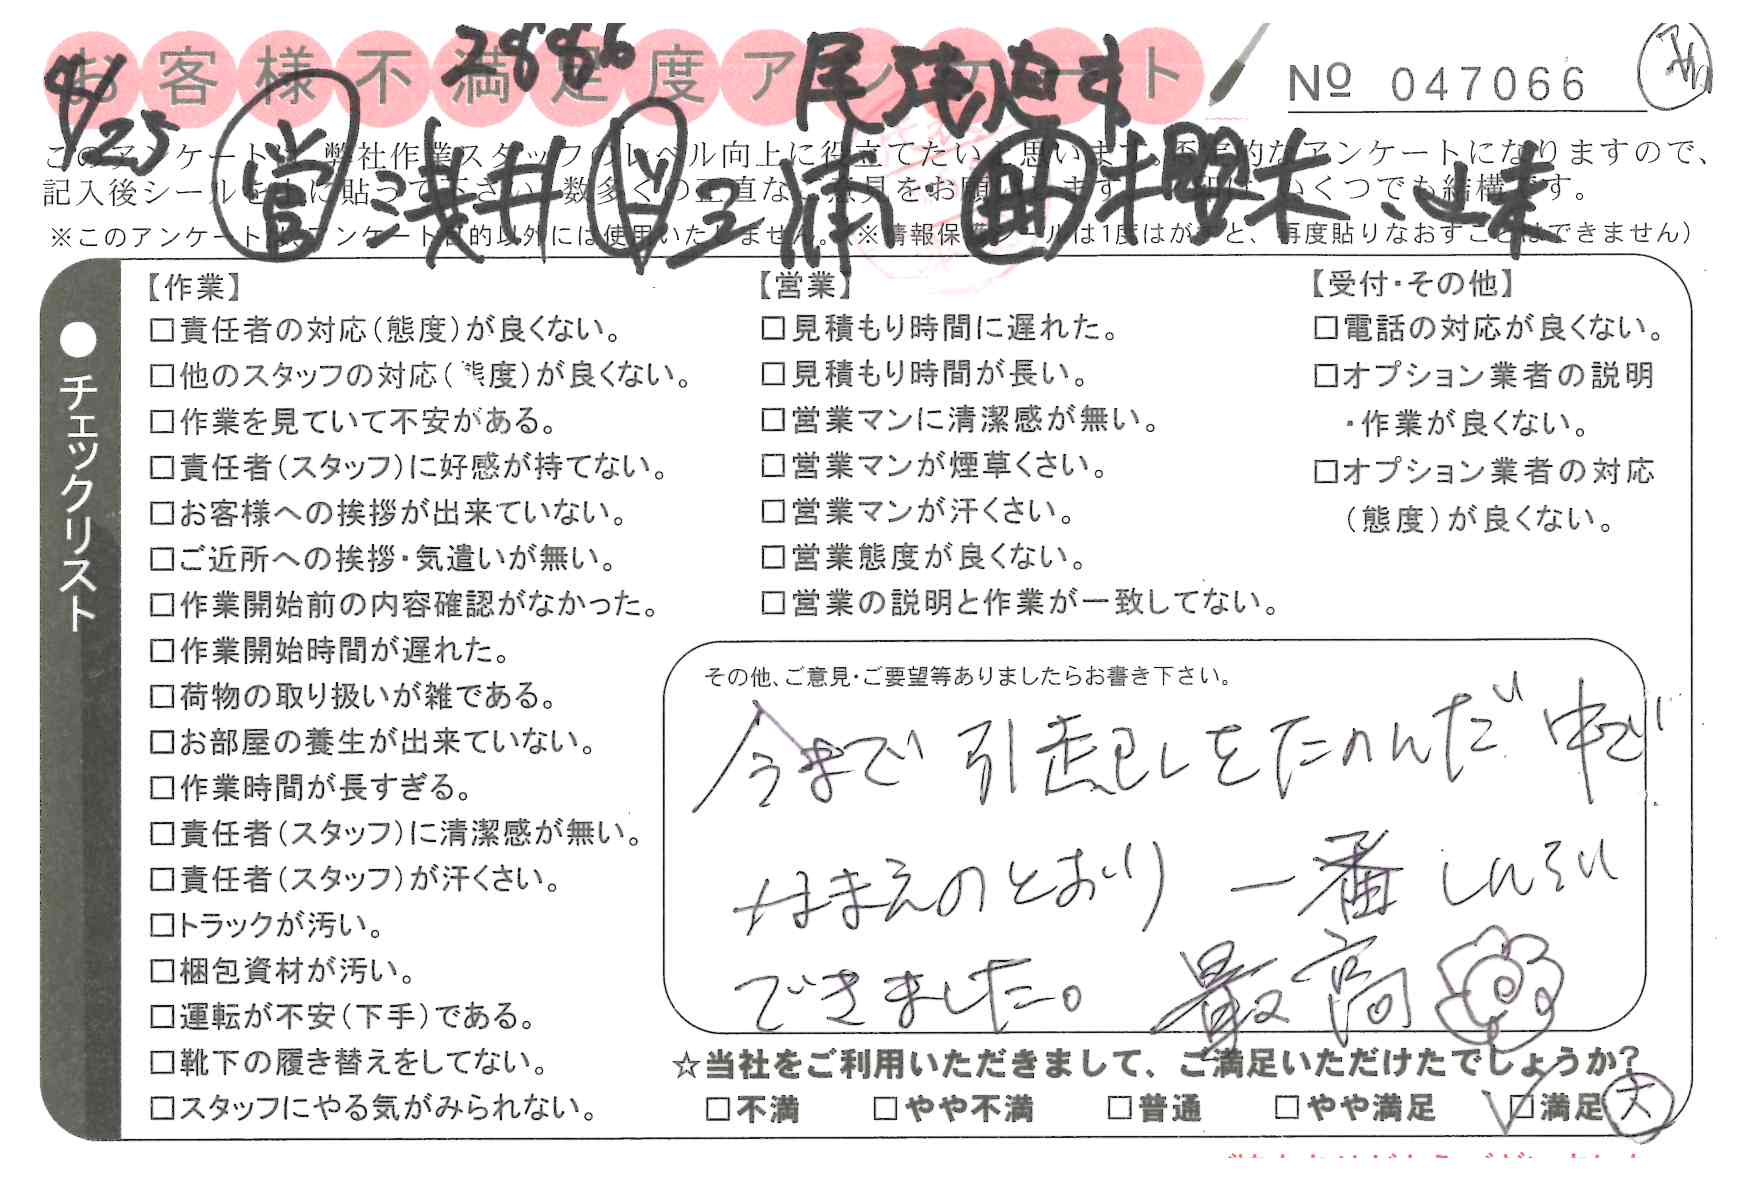 お客様不満足度アンケート
Nº 047066
4/25
2886
尾張旭市
営 浅井 三浦 櫻木
このアンケートは、弊社作業スタッフのレベル向上に役立てたいと思います。不定期的なアンケートになりますので、
記入後シールを上に貼って下さい。数多くの正直なご意見をお願いします。 いくつでも結構です。
※このアンケートはアンケート目的以外には使用いたしません。（※情報保護シールは1度はがすと、再度貼りなおすことはできません）
●チェックリスト
【作業】
□責任者の対応（態度）が良くない。
□他のスタッフの対応（態度）が良くない。
□作業を見ていて不安がある。
□責任者（スタッフ）に好感が持てない。
□お客様への挨拶が出来ていない。
□ご近所への挨拶・気遣いが無い。
□作業開始前の内容確認がなかった。
□作業開始時間が遅れた。
□荷物の取り扱いが雑である。
□お部屋の養生が出来ていない。
□作業時間が長すぎる。
□責任者（スタッフ）に清潔感が無い。
□責任者（スタッフ）が汗くさい。
□トラックが汚い。
□梱包資材が汚い。
□運転が不安（下手）である。
□靴下の履き替えをしてない。
□スタッフにやる気がみられない。
【営業】
□見積もり時間に遅れた。
□見積もり時間が長い。
□営業マンに清潔感が無い。
□営業マンが煙草くさい。
□営業マンが汗くさい。
□営業態度が良くない。
□営業の説明と作業が一致してない。
【受付・その他】
□電話の対応が良くない。
□オプション業者の説明
・作業が良くない。
□オプション業者の対応
（態度）が良くない。
その他、ご意見・ご要望等ありましたらお書き下さい。
今まで引越しをたのんだ中で
なまえのとおり 一番しんらい
できました。 最高
☆当社をご利用いただきまして、ご満足いただけたでしょうか？
□不満 □やや不満 □普通 □やや満足 □満足 大